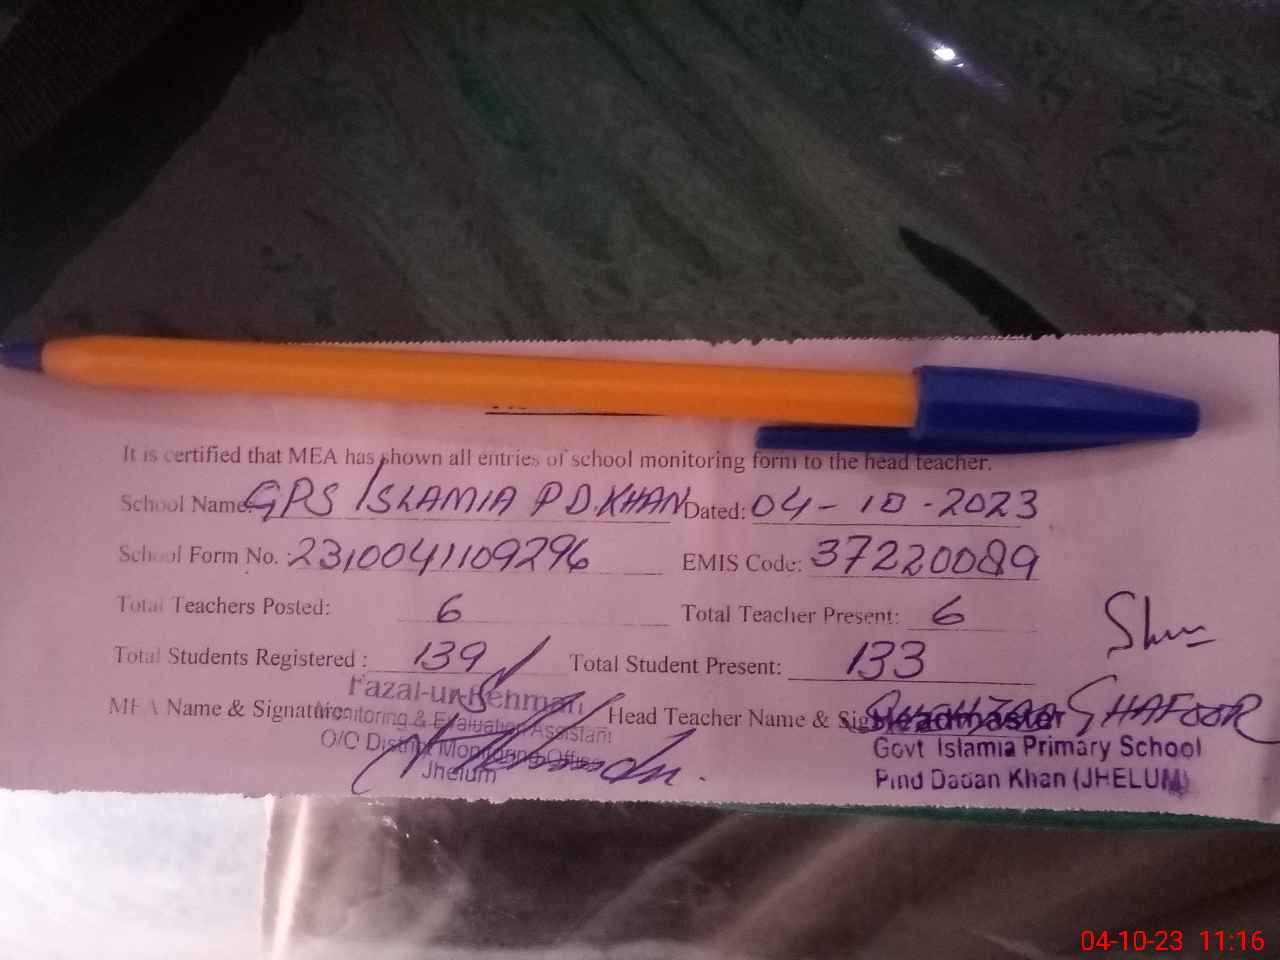 It is certified that MEA has shown all entries of school monitoring form to the head teacher.
School Name: GPS ISLAMIA P D.KHAN Dated: 04-10-2023
School Form No. :2310041109296 EMIS Code: 37220089
Total Teachers Posted: 6 Total Teacher Present: 6
Total Students Registered : 139 Total Student Present: 133
MEA Name & Signature Head Teacher Name & Sig GHAFOOR
Fazal-ur-Rehman
Monitoring & Evaluation Assistant
O/C District Monitoring Office
Jhelum
Headmaster
Govt Islamia Primary School
Pind Dadan Khan (JHELUM)
04-10-23 11:16